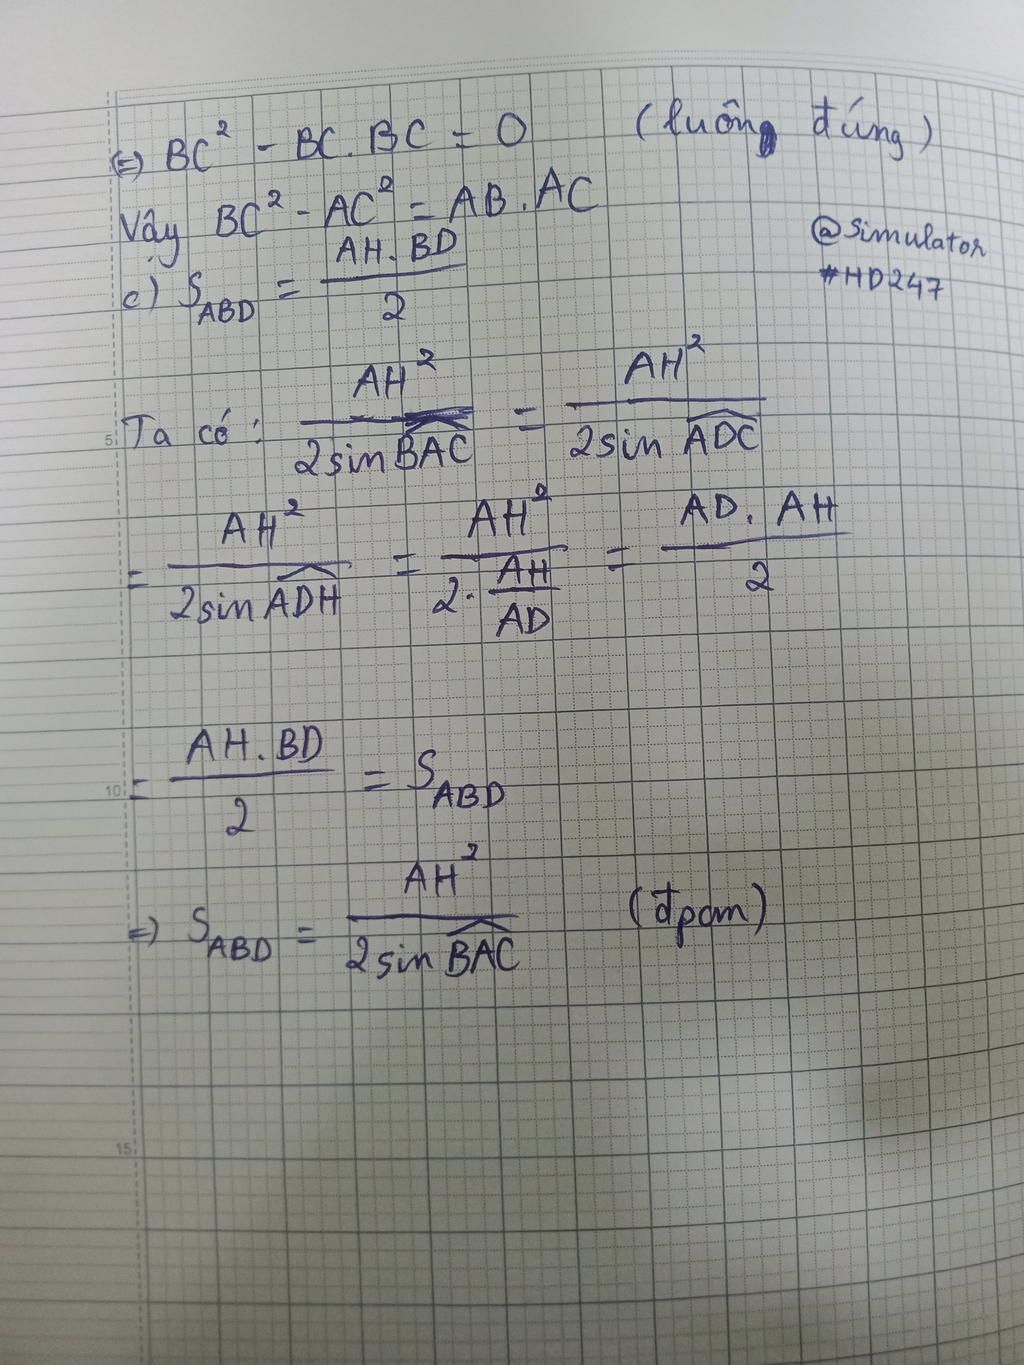 ⇔ BC² - BC. BC = 0 (luôn đúng)
Vậy BC² - AC² = AB. AC
@Simulator
#HD247
c) S_ABD = AH. BD / 2
5 Ta có: AH² / 2sin \widehat{BAC} = AH² / 2sin \widehat{ADC}
= AH² / 2sin \widehat{ADH} = AH² / 2. AH/AD = AD. AH / 2
10 = AH. BD / 2 = S_ABD
=> S_ABD = AH² / 2sin \widehat{BAC} (đpcm)
15